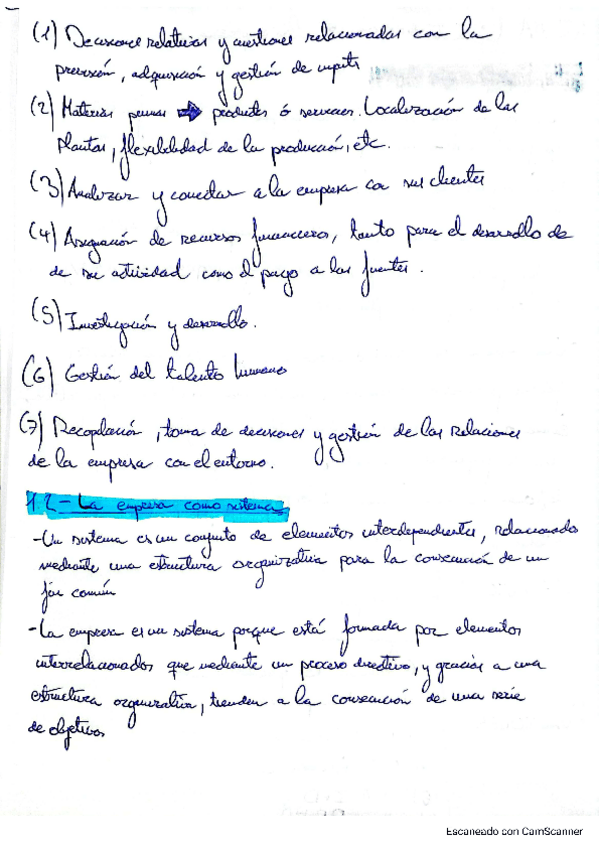 (1) Decisiones relativas y cuestiones relacionadas con la
previsión, adquisición y gestión de inputs
(2) Materias primas → productos ó servicios. Localización de las
plantas, flexibilidad de la producción, etc.
(3) Analizar y conectar a la empresa con sus clientes
(4) Asignación de recursos financieros, tanto para el desarrollo de
de su actividad como el pago a las fuentes.
(5) Investigación y desarrollo.
(6) Gestión del talento humano
(7) Recopilación, toma de decisiones y gestión de las relaciones
de la empresa con el entorno.
1.2- La empresa como sistema
-Un sistema es un conjunto de elementos interdependientes, relacionados
mediante una estructura organizativa para la consecución de un
fin común
-La empresa es un sistema porque está formada por elementos
interrelacionados que mediante un proceso directivo, y gracias a una
estructura organizativa, tienden a la consecución de una serie
de objetivos
Escaneado con CamScanner